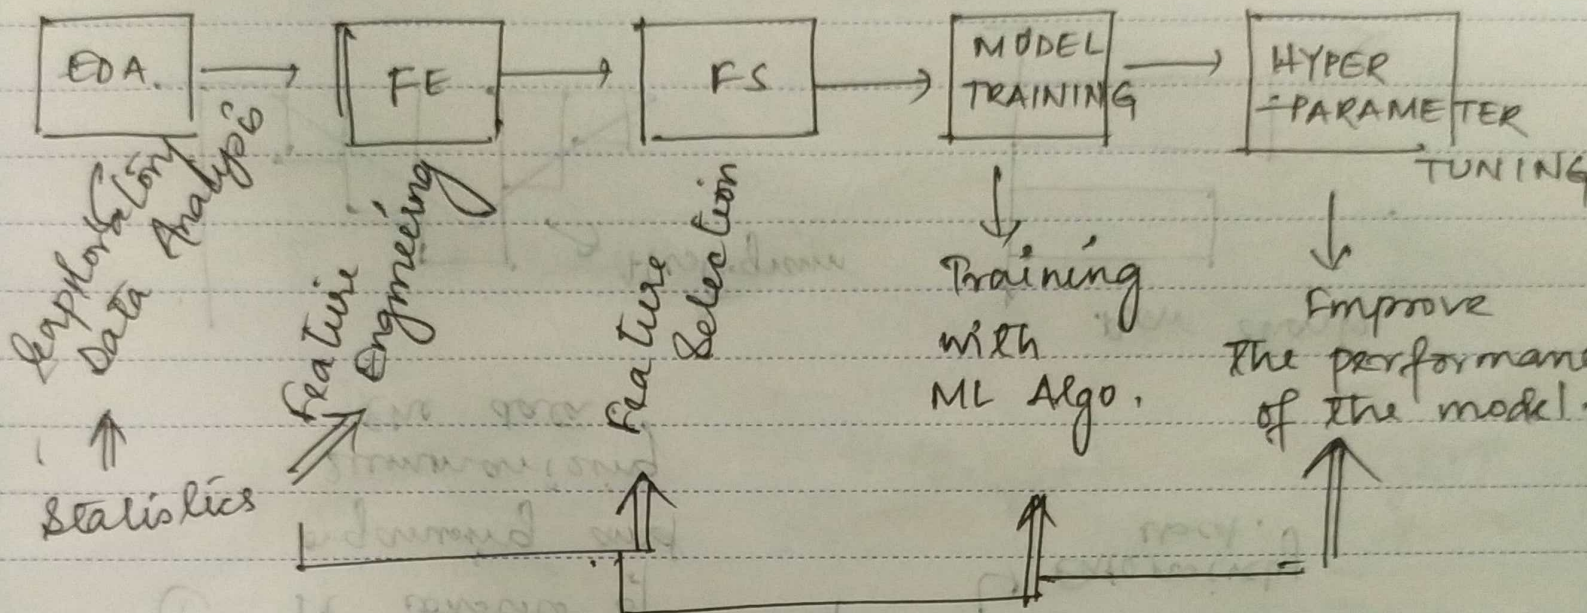 EDA.
FE
FS
MODEL
TRAINING
HYPER
-PARAMETER
TUNING
Data
Analysis
Feature
Engineering
Feature
Selection
Training
with
ML Algo.
Improve
the performan
of the model.
Statistics